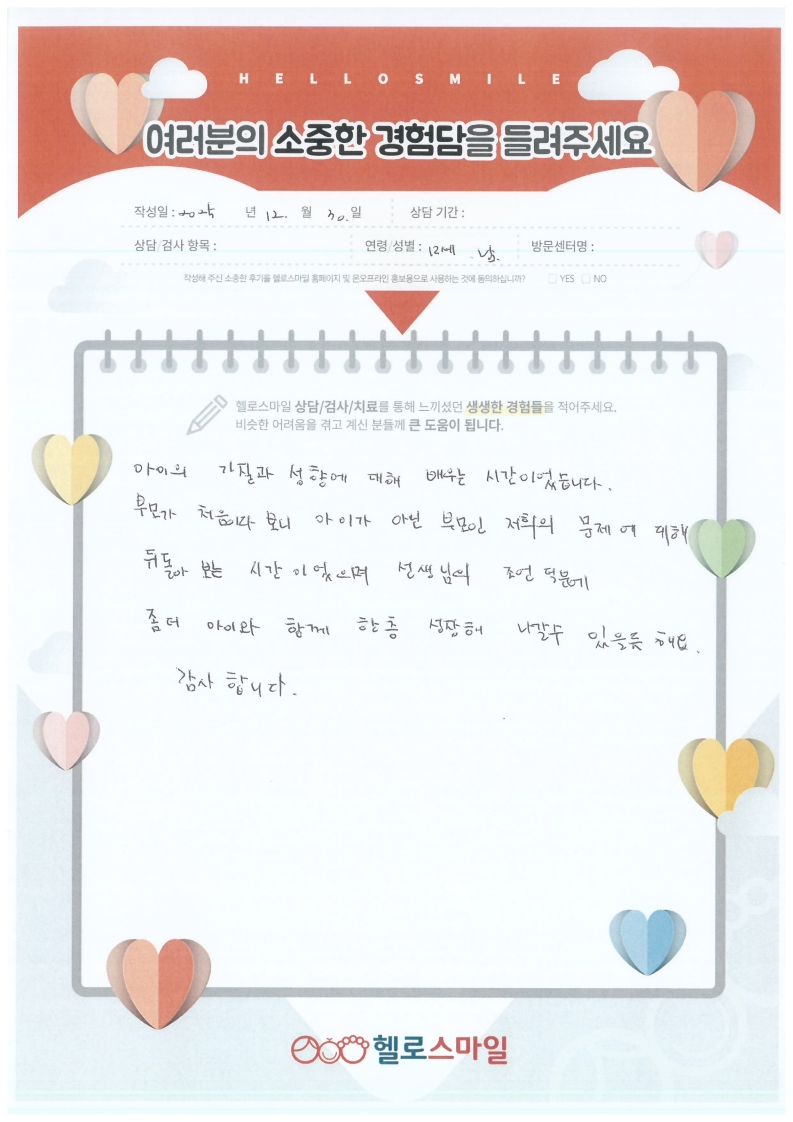 HELLOSMILE
여러분의 소중한 경험담을 들려주세요
작성일 : 2025 년 12. 월 30. 일 상담 기간 :
상담/검사 항목 : 연령/성별 : 12세 남. 방문센터명 :
작성해 주신 소중한 후기를 헬로스마일 홈페이지 및 온오프라인 홍보용으로 사용하는 것에 동의하십니까? YES NO
헬로스마일 상담/검사/치료를 통해 느끼셨던 생생한 경험들을 적어주세요.
비슷한 어려움을 겪고 계신 분들께 큰 도움이 됩니다.
아이의 기질과 성향에 대해 배우는 시간이었습니다.
부모가 처음이다 보니 아이가 아닌 부모인 저희의 문제에 대해
뒤돌아 보는 시간이었으며 선생님의 조언 덕분에
좀더 아이와 함께 한층 성장해 나갈수 있을듯 해요.
감사 합니다.
헬로스마일